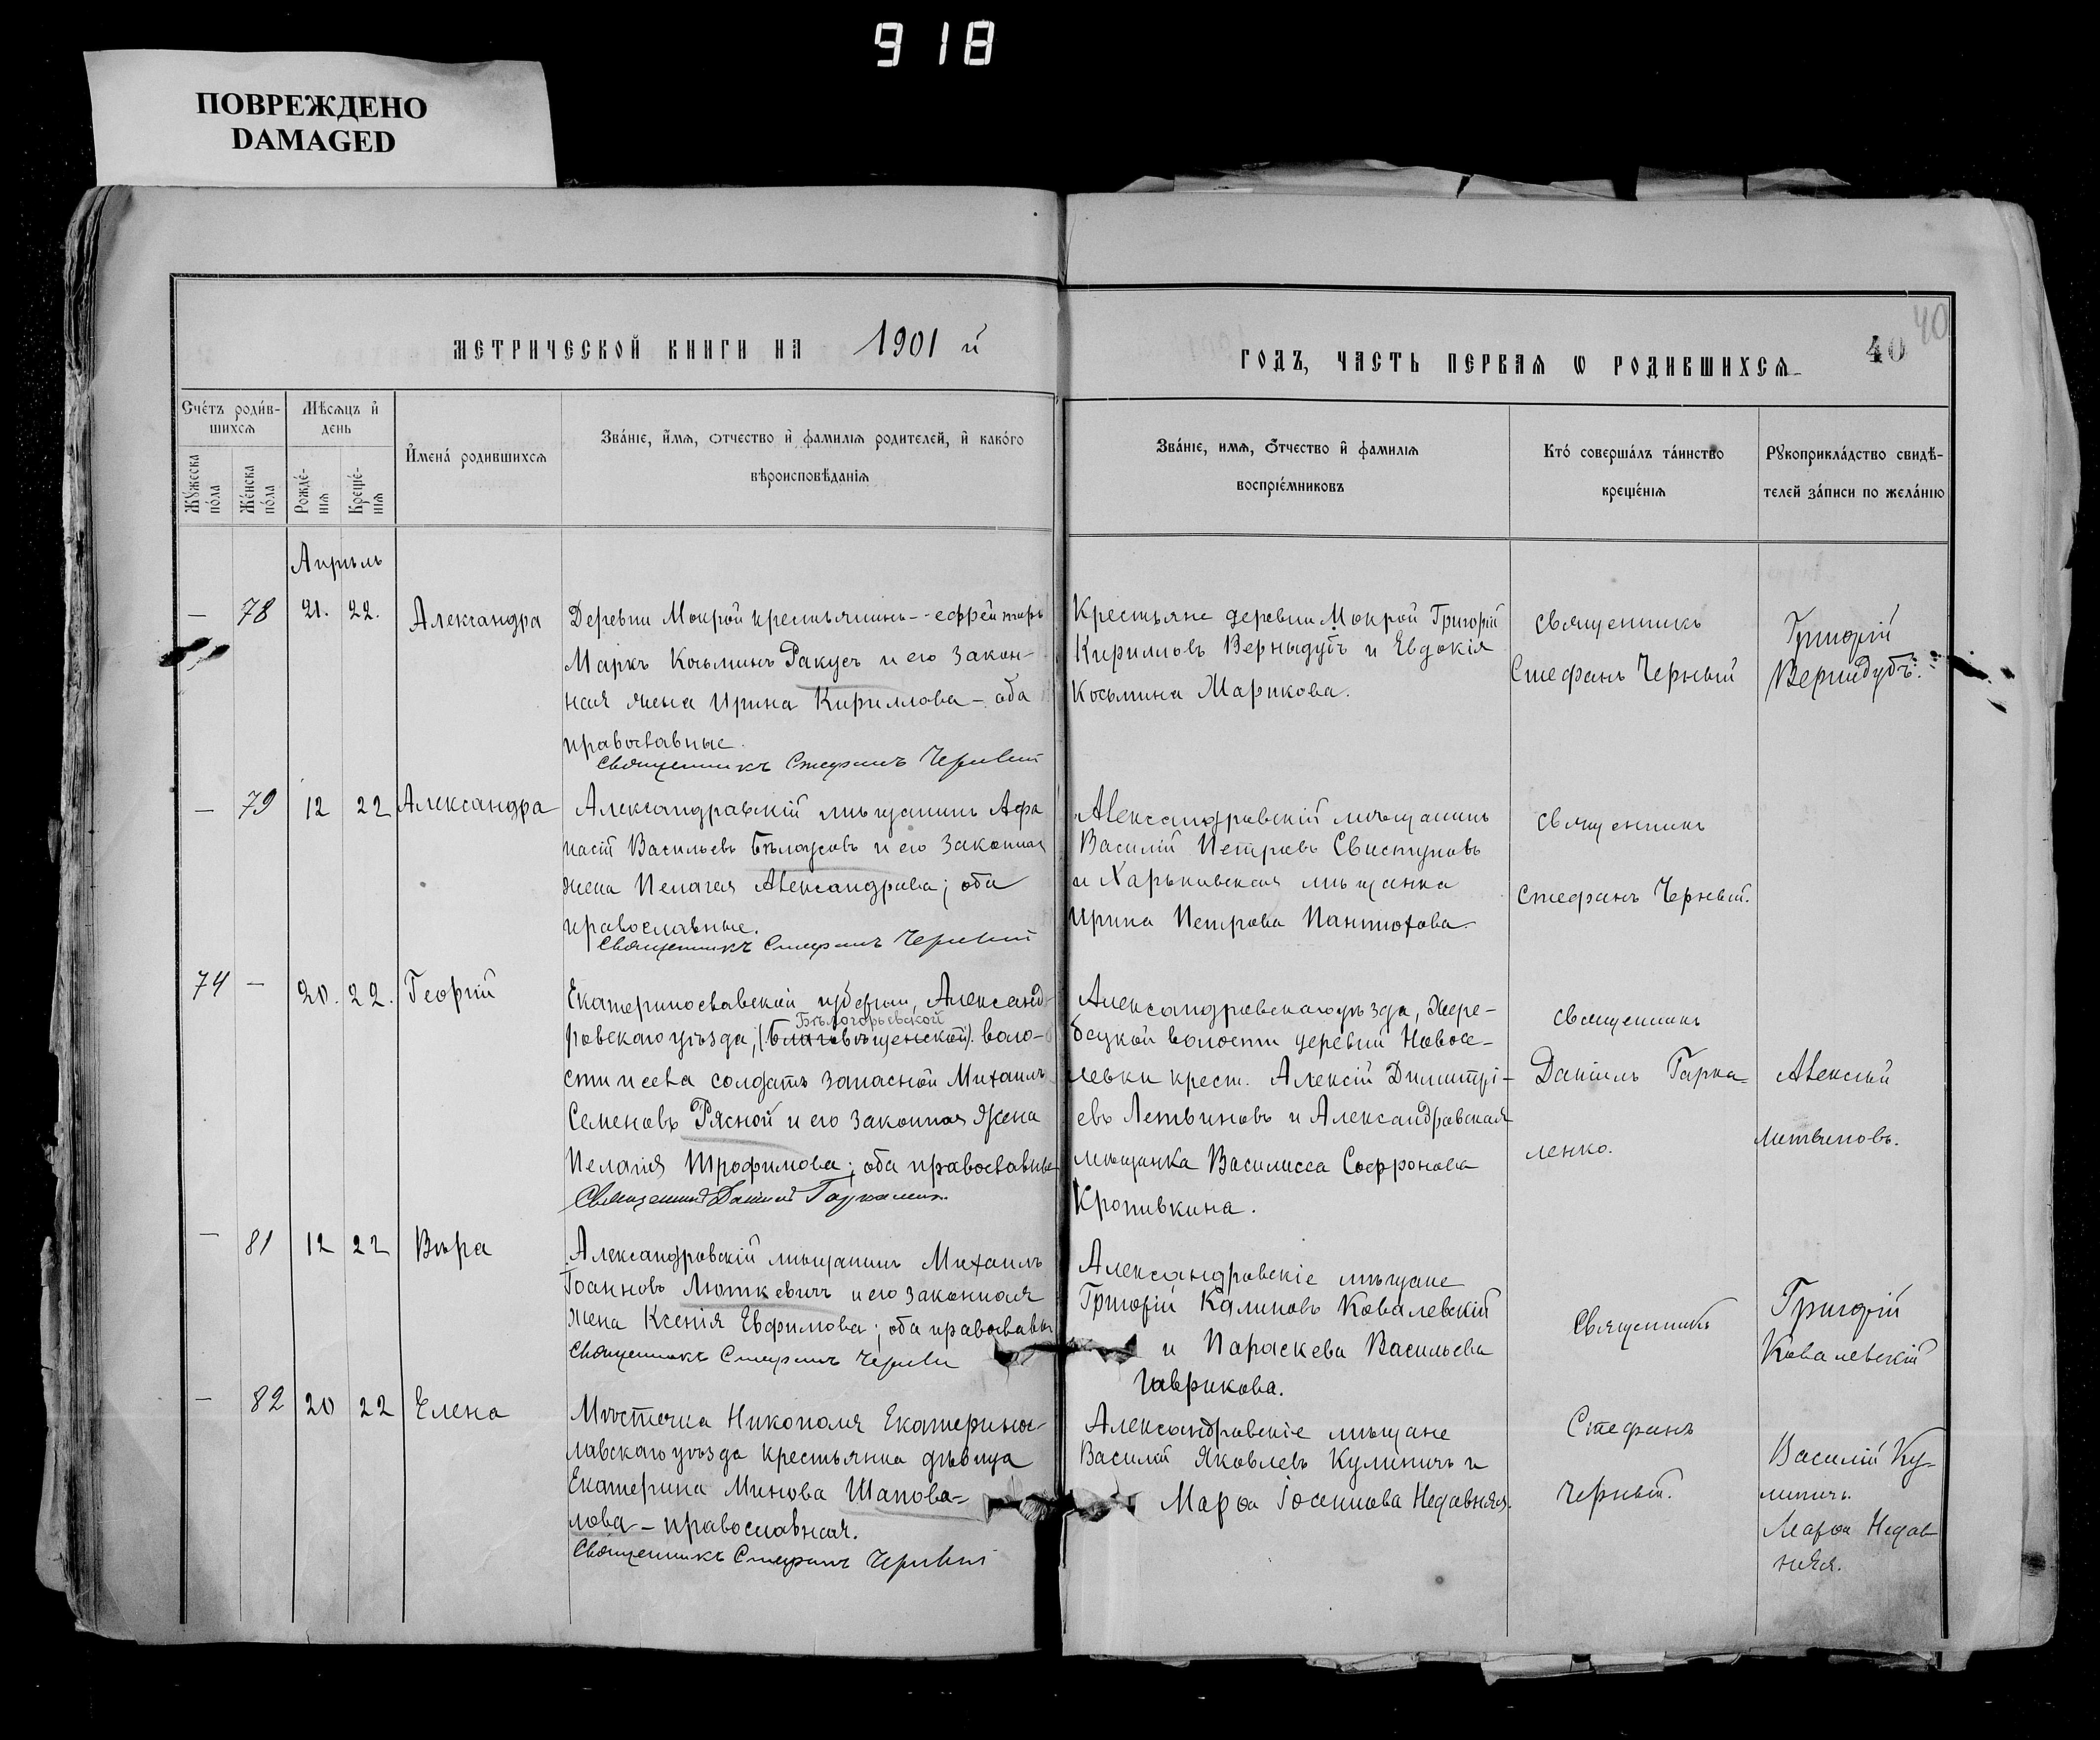 918
ПОВРЕЖДЕНО
DAMAGED
МЕТРИЧЕСКОЙ КНИГИ НА 1901 й
ГОДЪ, ЧАСТЬ ПЕРВАЯ Ѡ РОДИВШИХСЯ
40
40
Счетъ родив-
шихся
Мужеска
пола
Женска
пола
Мѣсяцъ и
день
Рожде-
нія
Креще-
нія
Имена родившихся
Званіе, имя, отчество и фамилія родителей, и какого
вѣроисповѣданія
Званіе, имя, отчество и фамилія
воспріемниковъ
Кто совершалъ таинство
крещенія
Рукоприкладство свидѣ-
телей записи по желанію
Апрѣль
— 78 21. 22. Александра
Деревни Мокрой крестьянинъ - ефрейторъ
Маркъ Косьминъ Ракусъ и его закон-
ная жена Ирина Кириллова - оба
православные.
Священникъ Стефанъ Черный
Крестьяне деревни Мокрой Григорій
Кирилловъ Вернидубъ и Евдокія
Косьмина Марикова.
Священникъ
Стефанъ Черный
Григорій
Вернидубъ.
— 79 12 22 Александра
Александравскій мѣщанинъ Афа
насій Васильевъ Бѣлоусовъ и его законная
жена Пелагея Александрова; оба
православные.
Священникъ Стефанъ Черный
Александровскій мѣщанинъ
Василій Петровъ Свистуновъ
и Харьковская мѣщанка
Ирина Петрова Пантюхова.
Священникъ
Стефанъ Черный.
74 — 20. 22. Георгій
Екатеринославской губерніи, Александ-
Бѣлогорьевской
ровскаго уѣзда, (Благовѣщенской) воло-
сти и села солдатъ запасной Михаилъ
Семеновъ Рясной и его законная жена
Пелагія Трофимова; оба православные
Священникъ Даніилъ Гаркаленко.
Александровскаго уѣзда, Жере-
бецкой волости деревни Новосе-
левки крест. Алексій Димитрі-
евъ Летвиновъ и Александровская
мѣщанка Василисса Софронова
Кропивкина.
Священникъ
Даніилъ Гарка=
ленко.
Алексѣй
Литвиновъ.
— 81 12 22 Вѣра
Александровскій мѣщанинъ Михаилъ
Іоанновъ Люткевичъ и его законная
жена Ксенія Евфимова; оба православны
Священникъ Стефанъ Черный
Александровскіе мѣщане
Григорій Калиновъ Ковалевскій
и Параскева Васильева
Гаврикова.
Священникъ
Григорій
Ковалевскій
— 82 20 22 Елена
Мѣстечка Никополя Екатеринос-
лавскаго уѣзда крестьянка дѣвица
Екатерина Минова Шапова=
лова - православная.
Священникъ Стефанъ Черный
Александровскіе мѣщане
Василій Яковлевъ Кулиничъ и
Марѳа Іосифова Недавняя.
Стефанъ
Черный.
Василій Ку-
линичъ.
Марѳа Недав-
няя.